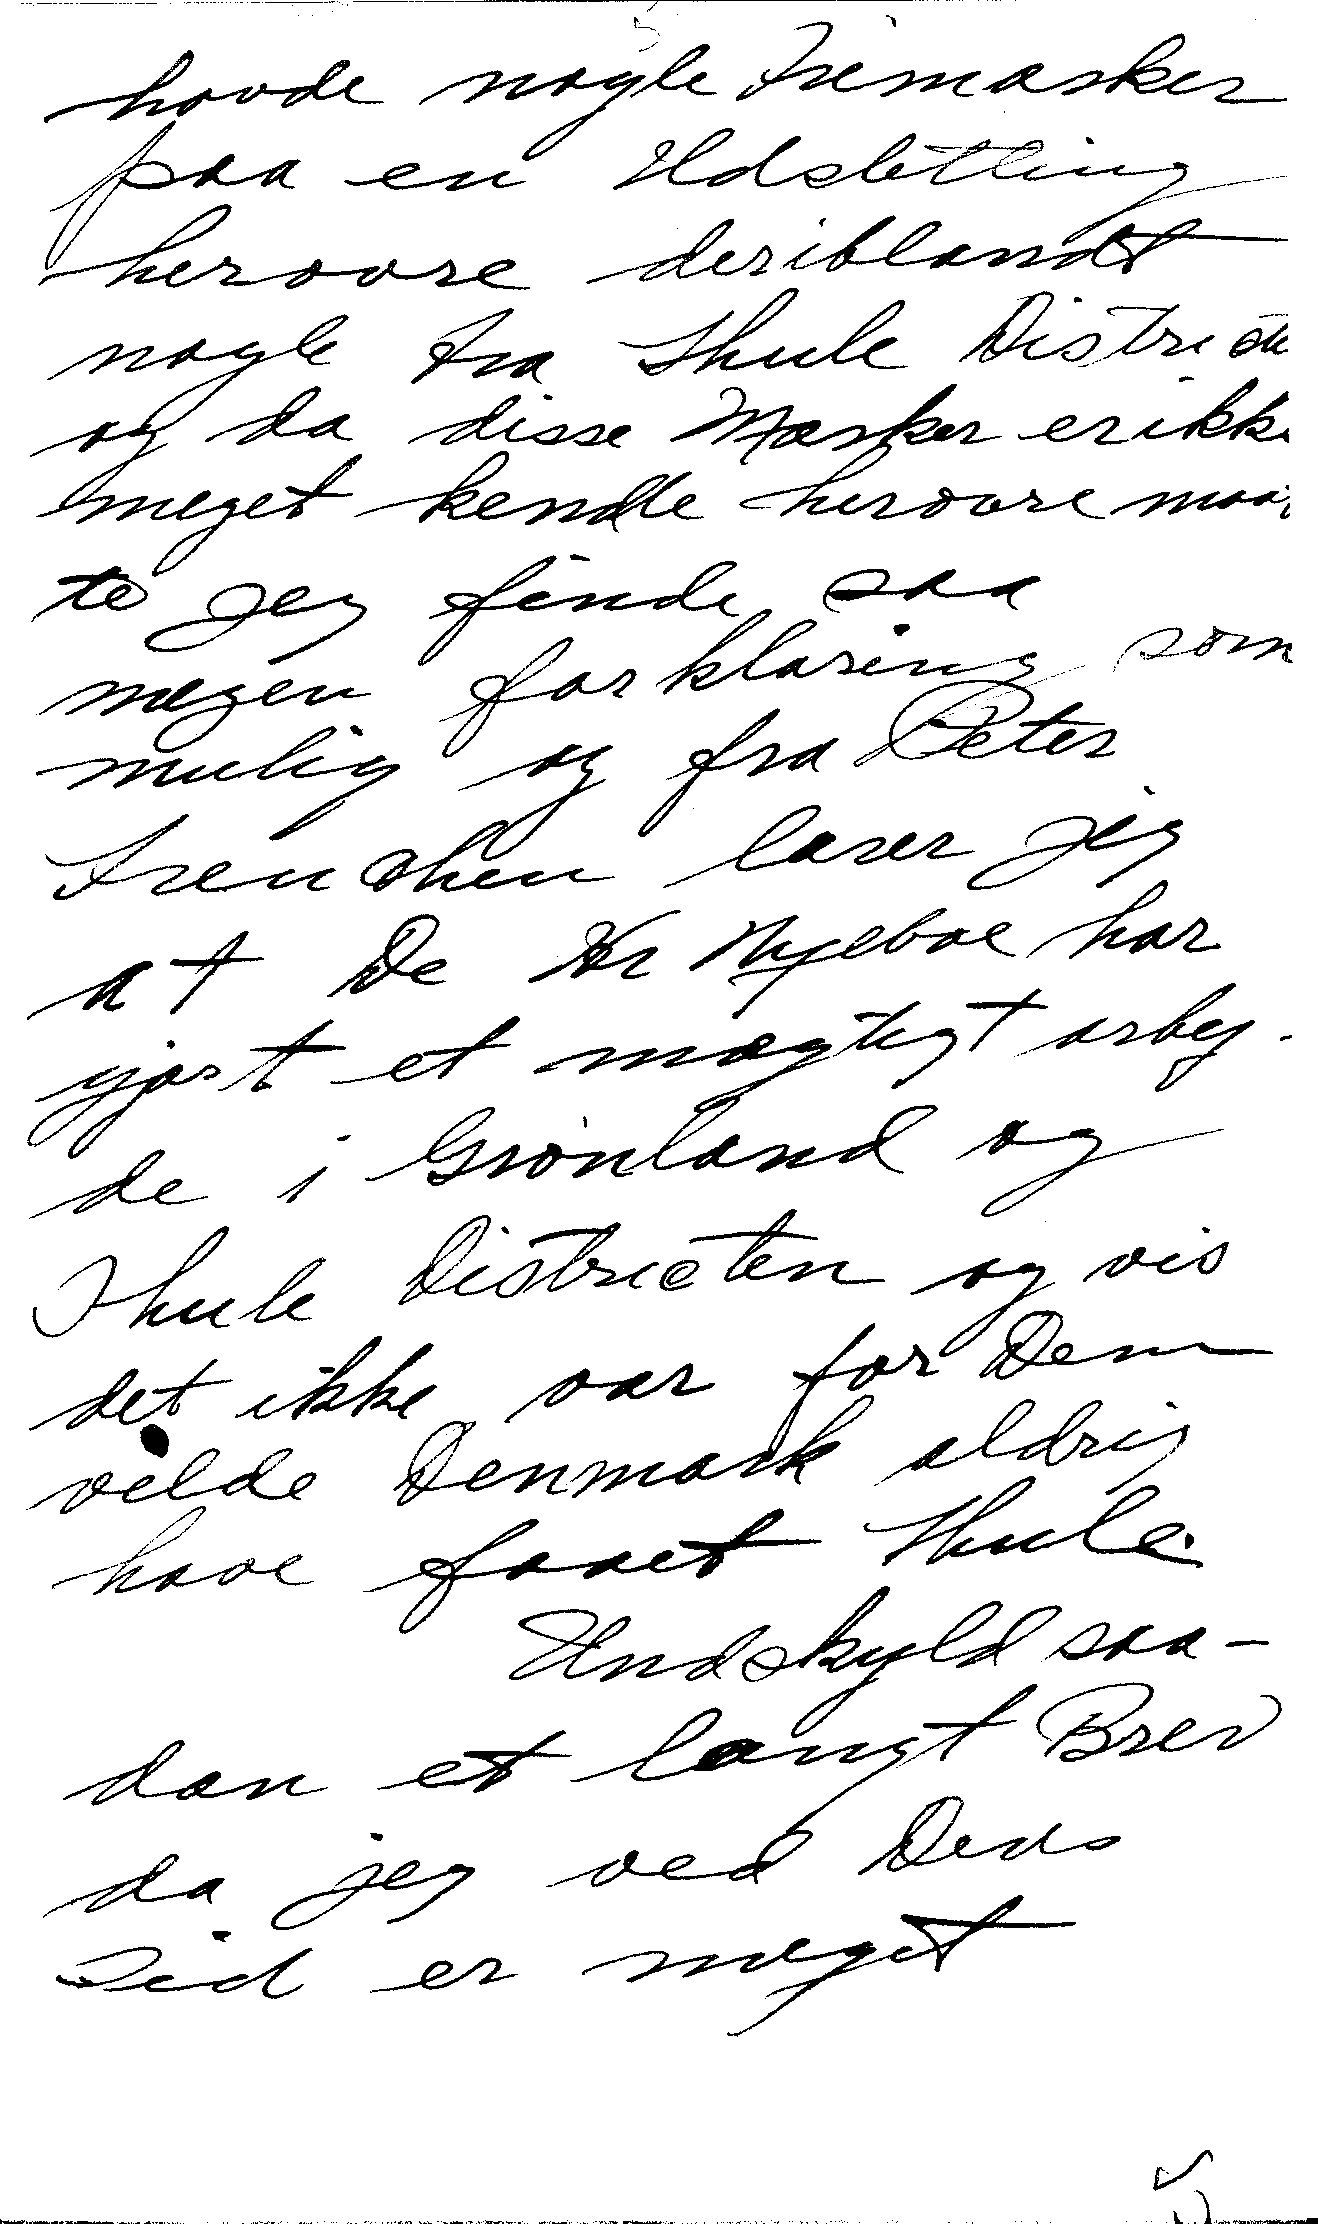 havde nogle Fremasker
paa en Udstetling
herovre deriblandt
nogle fra Thule Distric
og da disse Masker er ikke
meget kendte herovre maa
te jeg finde saa
megen forklaring som
mulig og fra Peter
Freuchen laser jeg
at De Hr Nyeboe har
gjort et magtigt arbej-
de i Grønland og
Thule Districten og vis
det ikke var for Dem
vilde Denmark aldrig
have faaet Thule.
Undskyld saa-
dan et langt Brev
da jeg ved Deres
Tid er meget